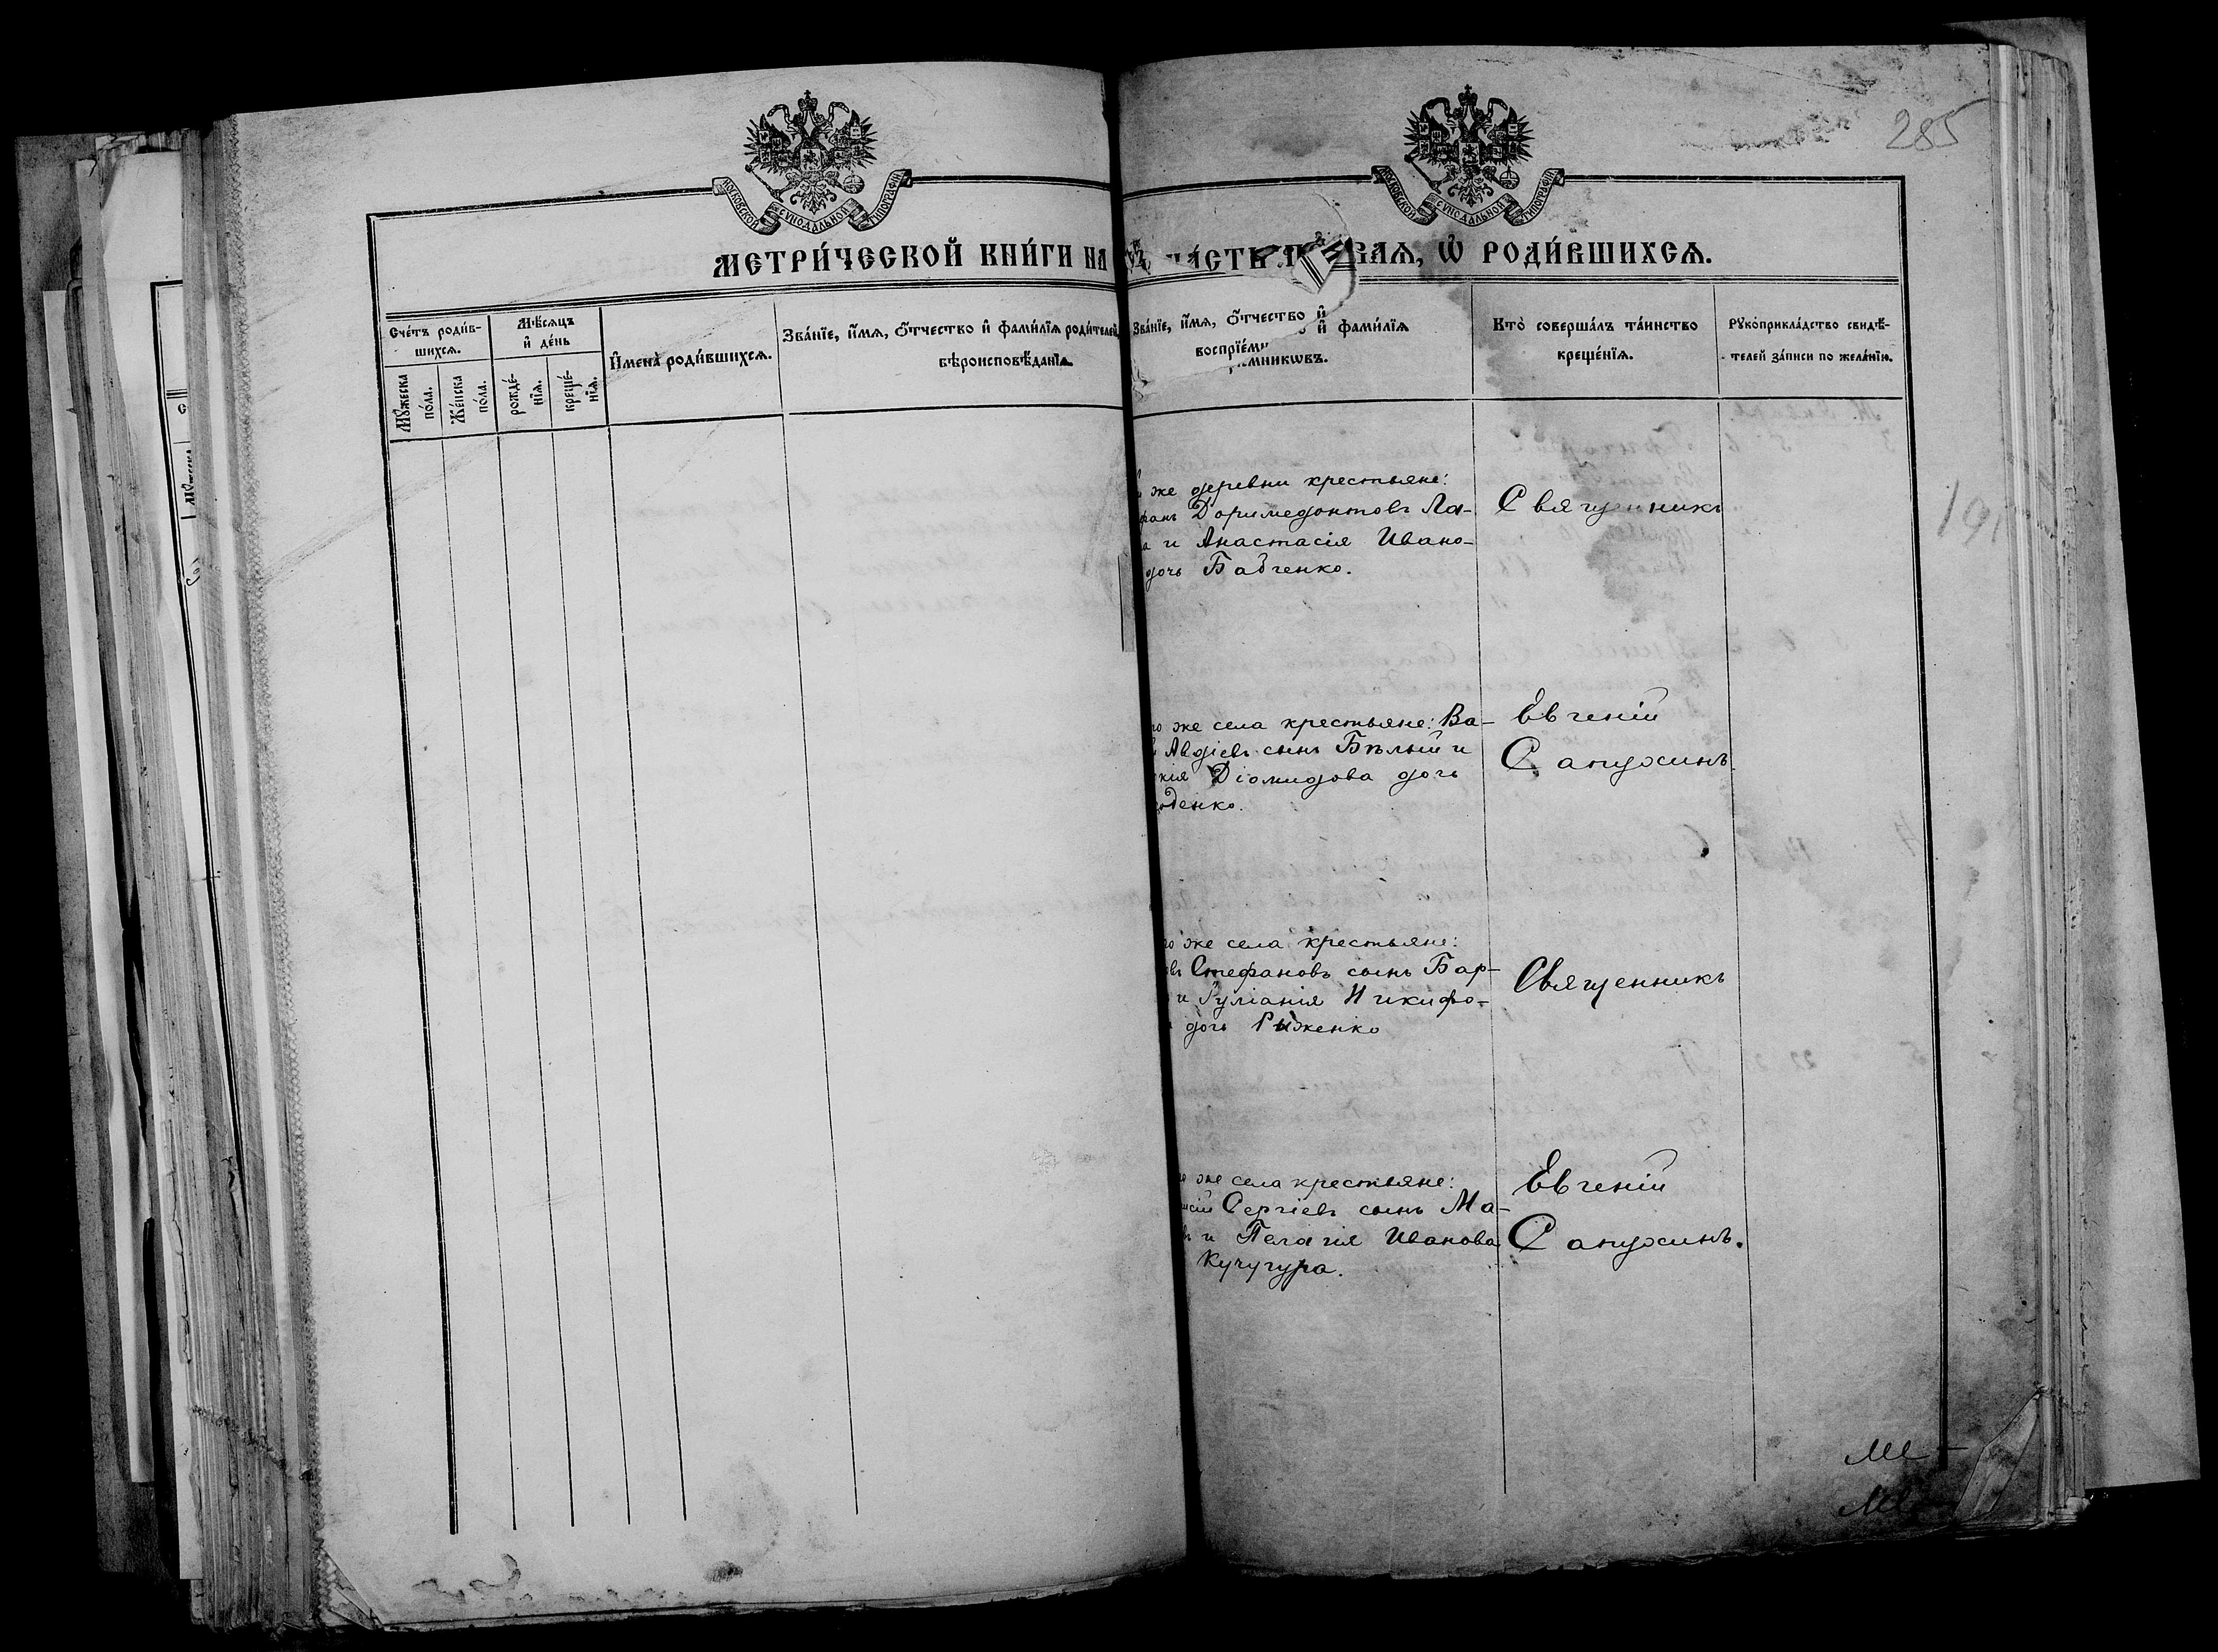 285
МОСКОВСКОЙ СѴНОДАЛЬНОЙ ТИПОГРАФІИ
МОСКОВСКОЙ СѴНОДАЛЬНОЙ ТИПОГРАФІИ
МЕТРИ́ЧЕСКОЙ КНИ́ГИ НА
ЧА́СТЬ ВАѦ, Ѽ РОДИ́ВШИХСѦ.
Сче́тъ роди́в-
шихсѧ.
Мѣ́сѧцъ
и҆ де́нь
Мꙋ́жеска
по́ла.
Же́нска
по́ла.
рожде́-
нїѧ.
креще́-
нїѧ.
И҆мена̀ роди́вшихсѧ.
Зва́нїе, и҆́мѧ, ѻ҆́тчество и҆ фами́лїѧ роди́телей,
вѣроисповѣ́данїѧ
Зва́нїе, и҆́мѧ, ѻ҆́тчество и҆
и҆ фами́лїѧ
воспрїе́м
мникѡвъ.
Кто̀ соверша́лъ та́инство
креще́нїѧ.
Рꙋкоприкла́дство свидѣ́-
телей за́писи по жела́нїю.
же деревни крестьяне:
Доримедонтовъ Ла-
и Анастасія Ивано-
дочь Бабченко.
Священникъ
191
же села крестьяне: Ва-
Авдіевъ сынъ Бѣлый и
Діомидова дочь
денко.
Евгеній
Сапухинъ.
же села крестьяне:
Стефановъ сынъ Бар-
и Іуліанія Никифо-
дочь Рыженко
Священникъ
же села крестьяне:
Сергіевъ сынъ Ма-
и Пелагія Иванова
Кучугура.
Евгеній
Сапухинъ.